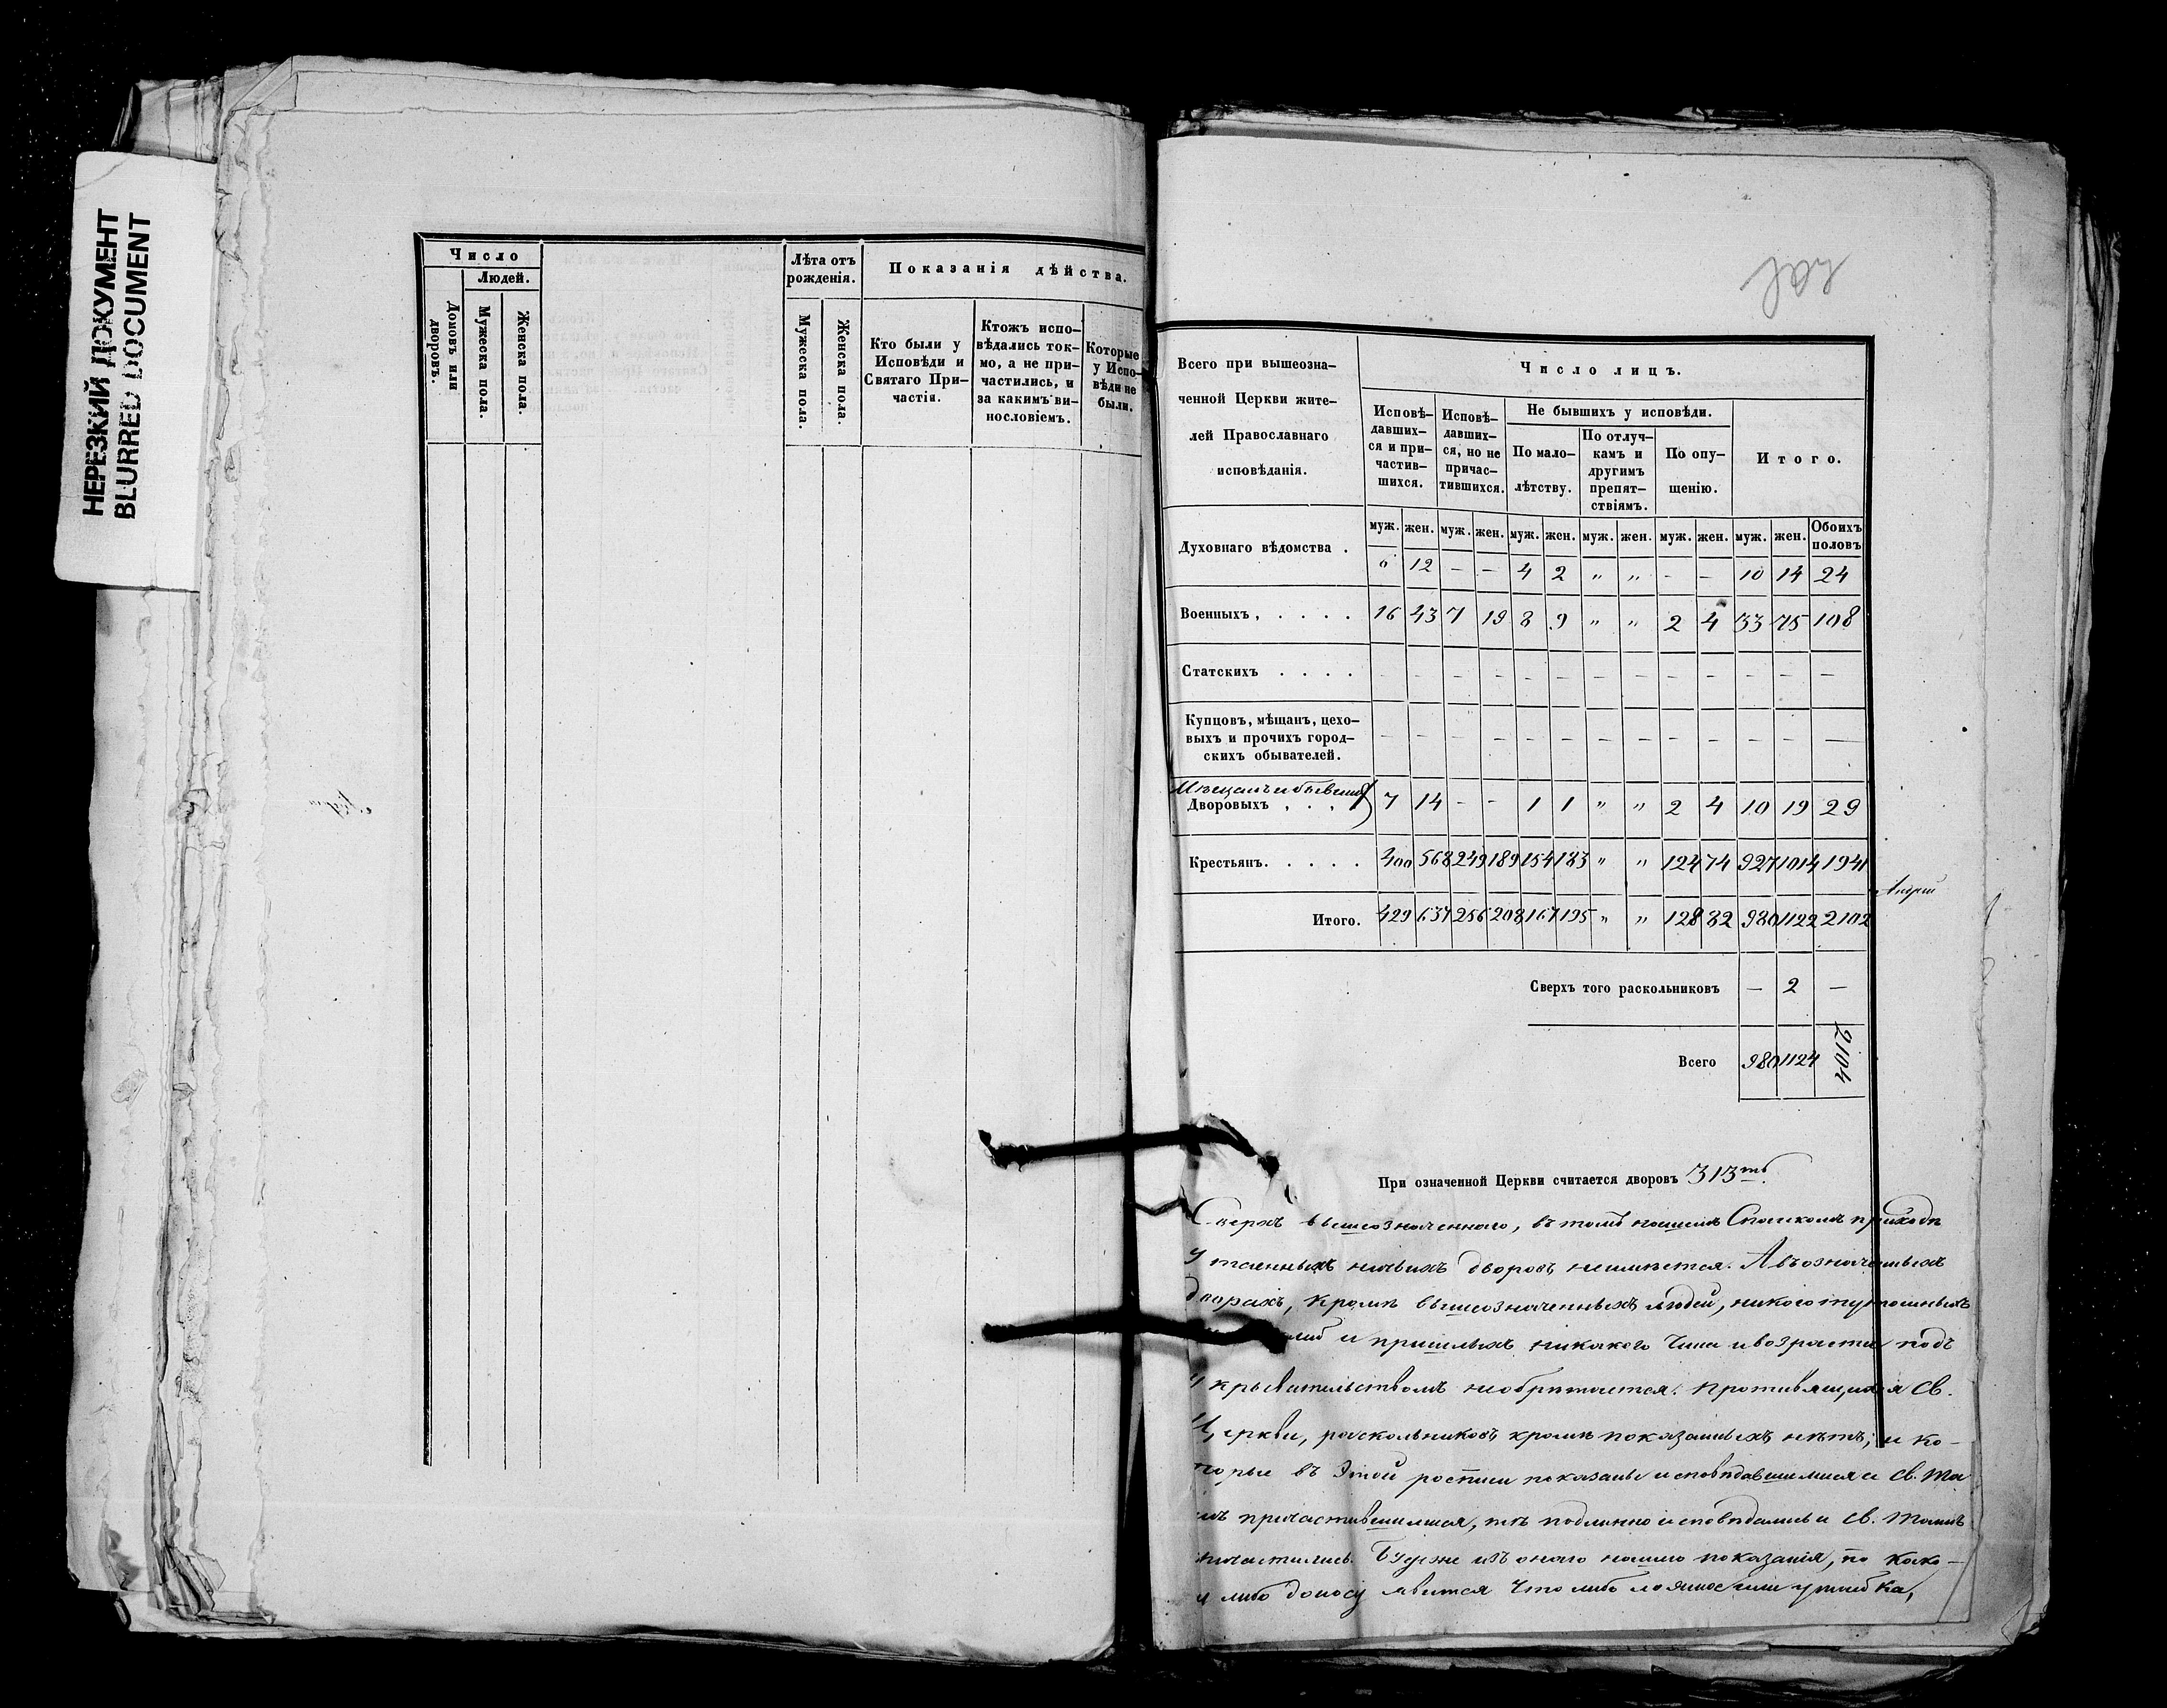 НЕРЕЗКИЙ ДОКУМЕНТ
BLURRED DOCUMENT
Число
Людей.
Домовъ или дворовъ.
Мужеска пола.
Женска пола.
Лѣта отъ рожденія.
Мужеска пола.
Женска пола.
Показанія дѣйства.
Кто были у
Исповѣди и
Святаго При-
частія.
Ктожъ испо-
вѣдались ток-
мо, а не при-
частились, и
за какимъ ви-
нословіемъ.
Которые
у Испо-
вѣди не
были.
Всего при вышеозна-
ченной Церкви жите-
лей Православнаго
исповѣданія.
Число лицъ.
Исповѣ-
давших-
ся и при-
частив-
шихся.
Исповѣ-
давших-
ся, но не
причас-
тившихся.
Не бывшихъ у исповѣди.
По мало-
лѣтству.
По отлуч-
камъ и
другимъ
препят-
ствіямъ.
По опу-
щенію.
Итого.
муж. жен. муж. жен. муж. жен. муж. жен. муж. жен. муж. жен. Обоихъ половъ
Духовнаго вѣдомства . 6 12 — — 4 2 " " - — 10 14 24
Военныхъ , . . . . 16 43 7 19 8 9 " " 2 4 33 75 108
Статскихъ . . . . - - - - - - - - - - - - —
Купцовъ, мѣщанъ, цехо-
выхъ и прочихъ город-
скихъ обывателей. — - - - - - - - - - - - —
Мѣщанъ и бывшихъ
Дворовыхъ , . . , 7 14 - - 1 1 " " 2 4 10 19 29
Крестьянъ. . . . . 400 568 249 189 154 183 " " 124 74 927 1014 1941
Итого. 429 637 256 208 167 195 " " 128 82 980 1122 2102
Сверхъ того раскольниковъ — 2 —
Всего 980 1124 2104
При означенной Церкви считается дворовъ 313ть.
Сверхъ вышеозначеннаго, въ томъ нашемъ Спаскомъ приходѣ
утаенныхъ ничьихъ дворовъ неимѣется. А въ означенныхъ
дворахъ, кромѣ вышеозначенныхъ людей, никого
и пришлыхъ никакого чина и возраста подъ
укрывательствомъ необрѣтается. Противящихся Св.
Церкви, раскольниковъ кромѣ показанныхъ нѣтъ; и ко-
торые въ этой росписи показаны исповѣдавшимися и Св. Та
инъ причастившимися, тѣ подлинно исповѣдались и Св. Таинъ
причастились. Буде же изъ онаго нашего показанія, по како-
му либо доносу явится что либо ложное или утайка,